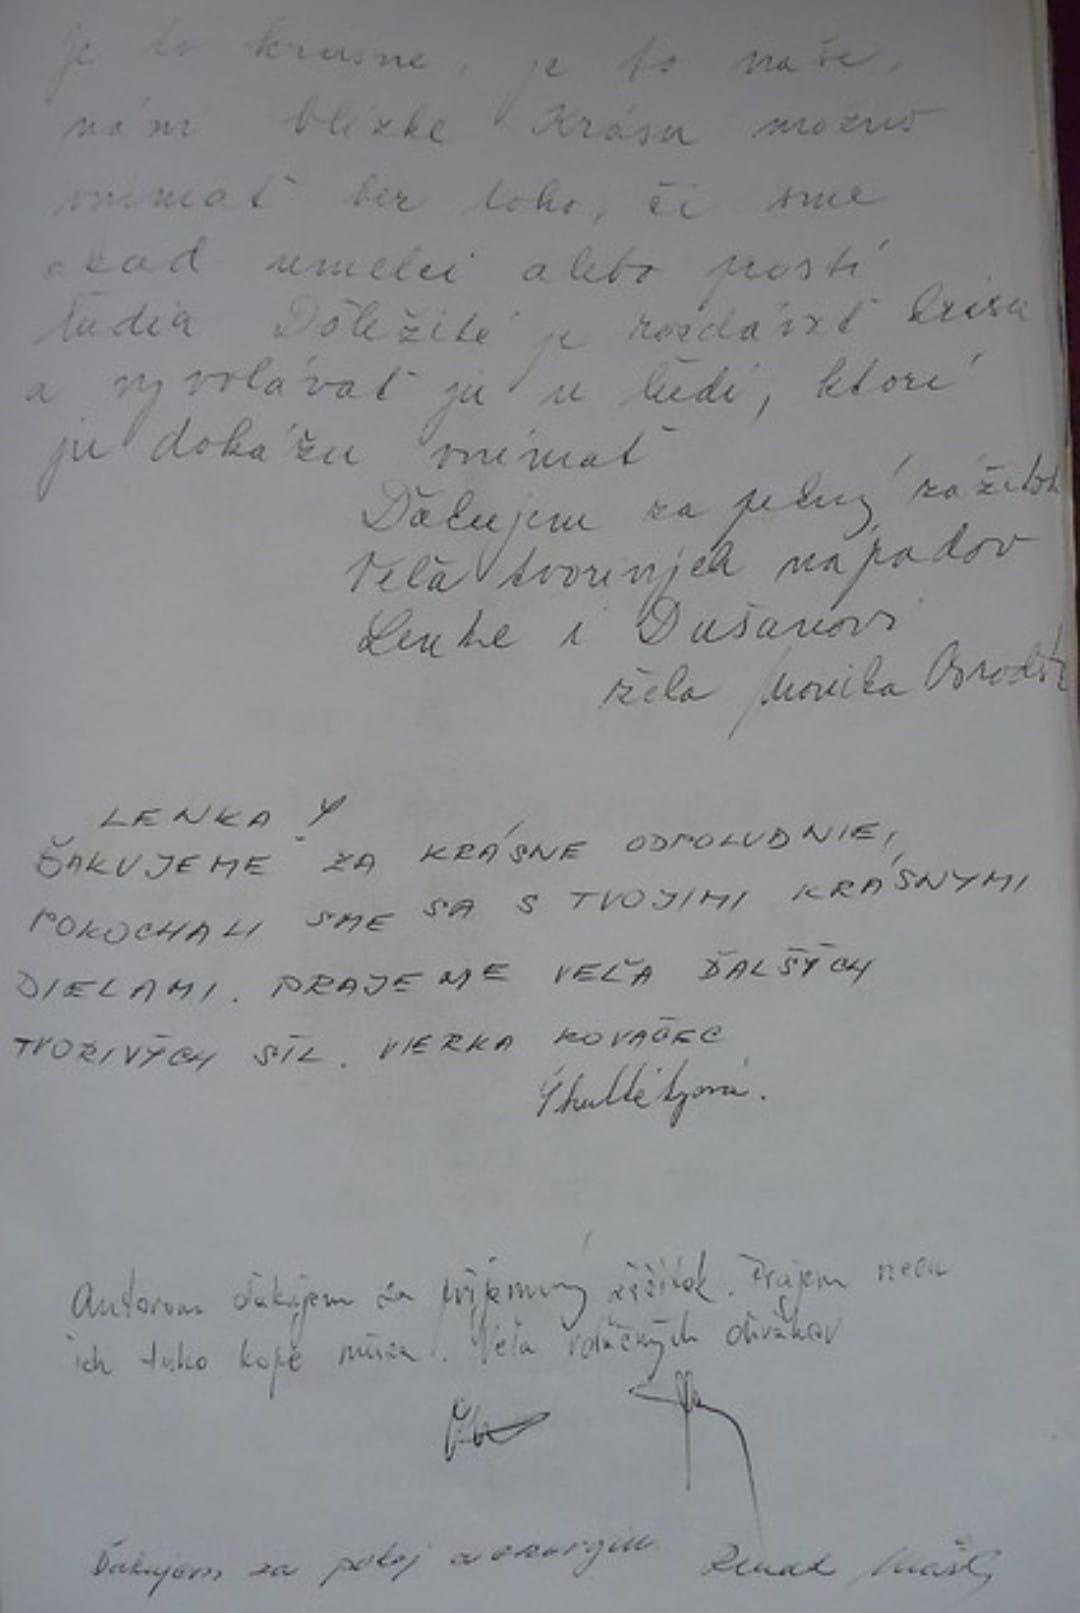 je to krásne, je to naše,
nám blízke Krásu možno
vnímať bez toho, či sme
akad umelci alebo prostí
ľudia Dôležité je rozdávať krásu
a vyvolávať ju u ľudí, ktorí
ju dokážu vnímať
Ďakujem za pekný zážitok
Veľa tvorivých nápadov
Lenke i Dušanovi
želá Monika
LENKA!
ĎAKUJEME ZA KRÁSNE ODPOLUDNIE,
POKOCHALI SME SA S TVOJIMI KRÁSNYMI
DIELAMI. PRAJEME VEĽA ĎALŠÝCH
TVORIVÝCH SÍL. VIERKA KOVAČEC
Škultétyová.
Autorom ďakujem za príjemný zážitok. Prajem nech
ich takto kope múza. Veľa vďačných divákov
Ďakujem za pokoj a energiu